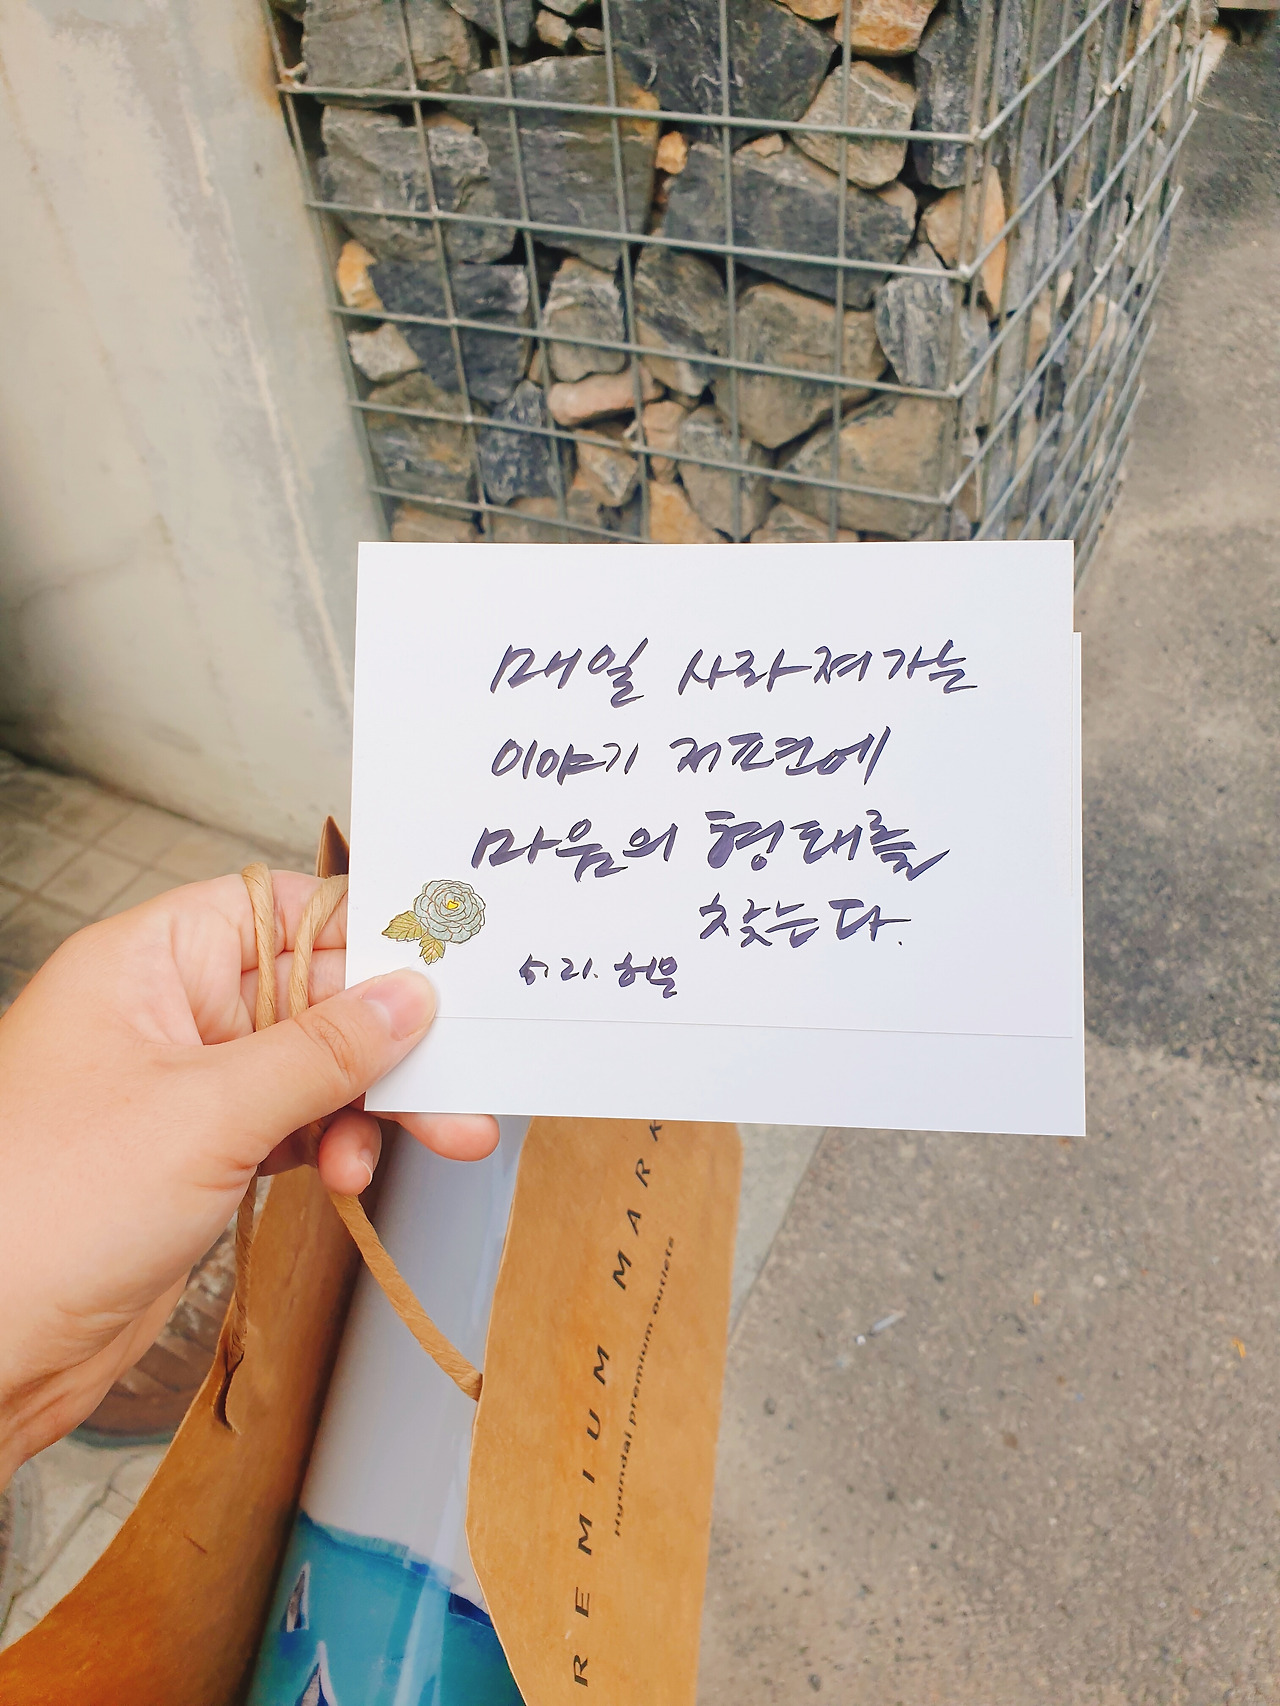 매일 사라져가는
이야기 저편에
마음의 형태를
찾는다.
5. 21. 허윤
REMIUM MARK
Hyundai premium outlets